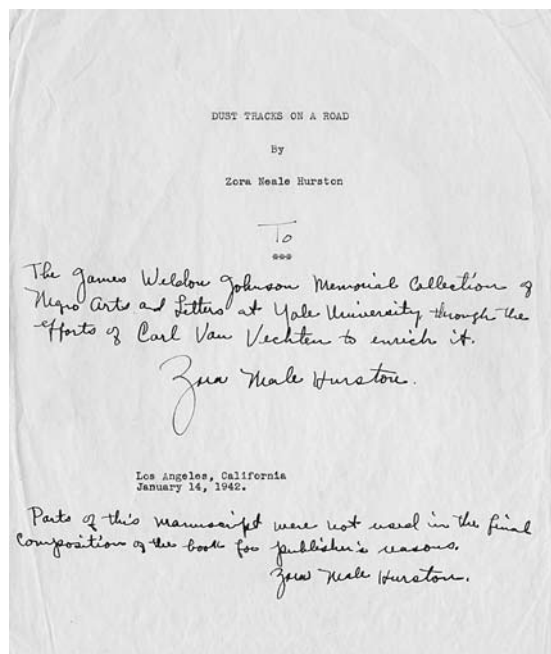 DUST TRACKS ON A ROAD
By
Zora Neale Hurston
To
***
The James Weldon Johnson Memorial Collection of
Negro Arts and Letters at Yale University through the
efforts of Carl Van Vechten to enrich it.
Zora Neale Hurston.
Los Angeles, California
January 14, 1942.
Parts of this manuscript were not used in the final
composition of the book for publisher's reasons.
Zora Neale Hurston.